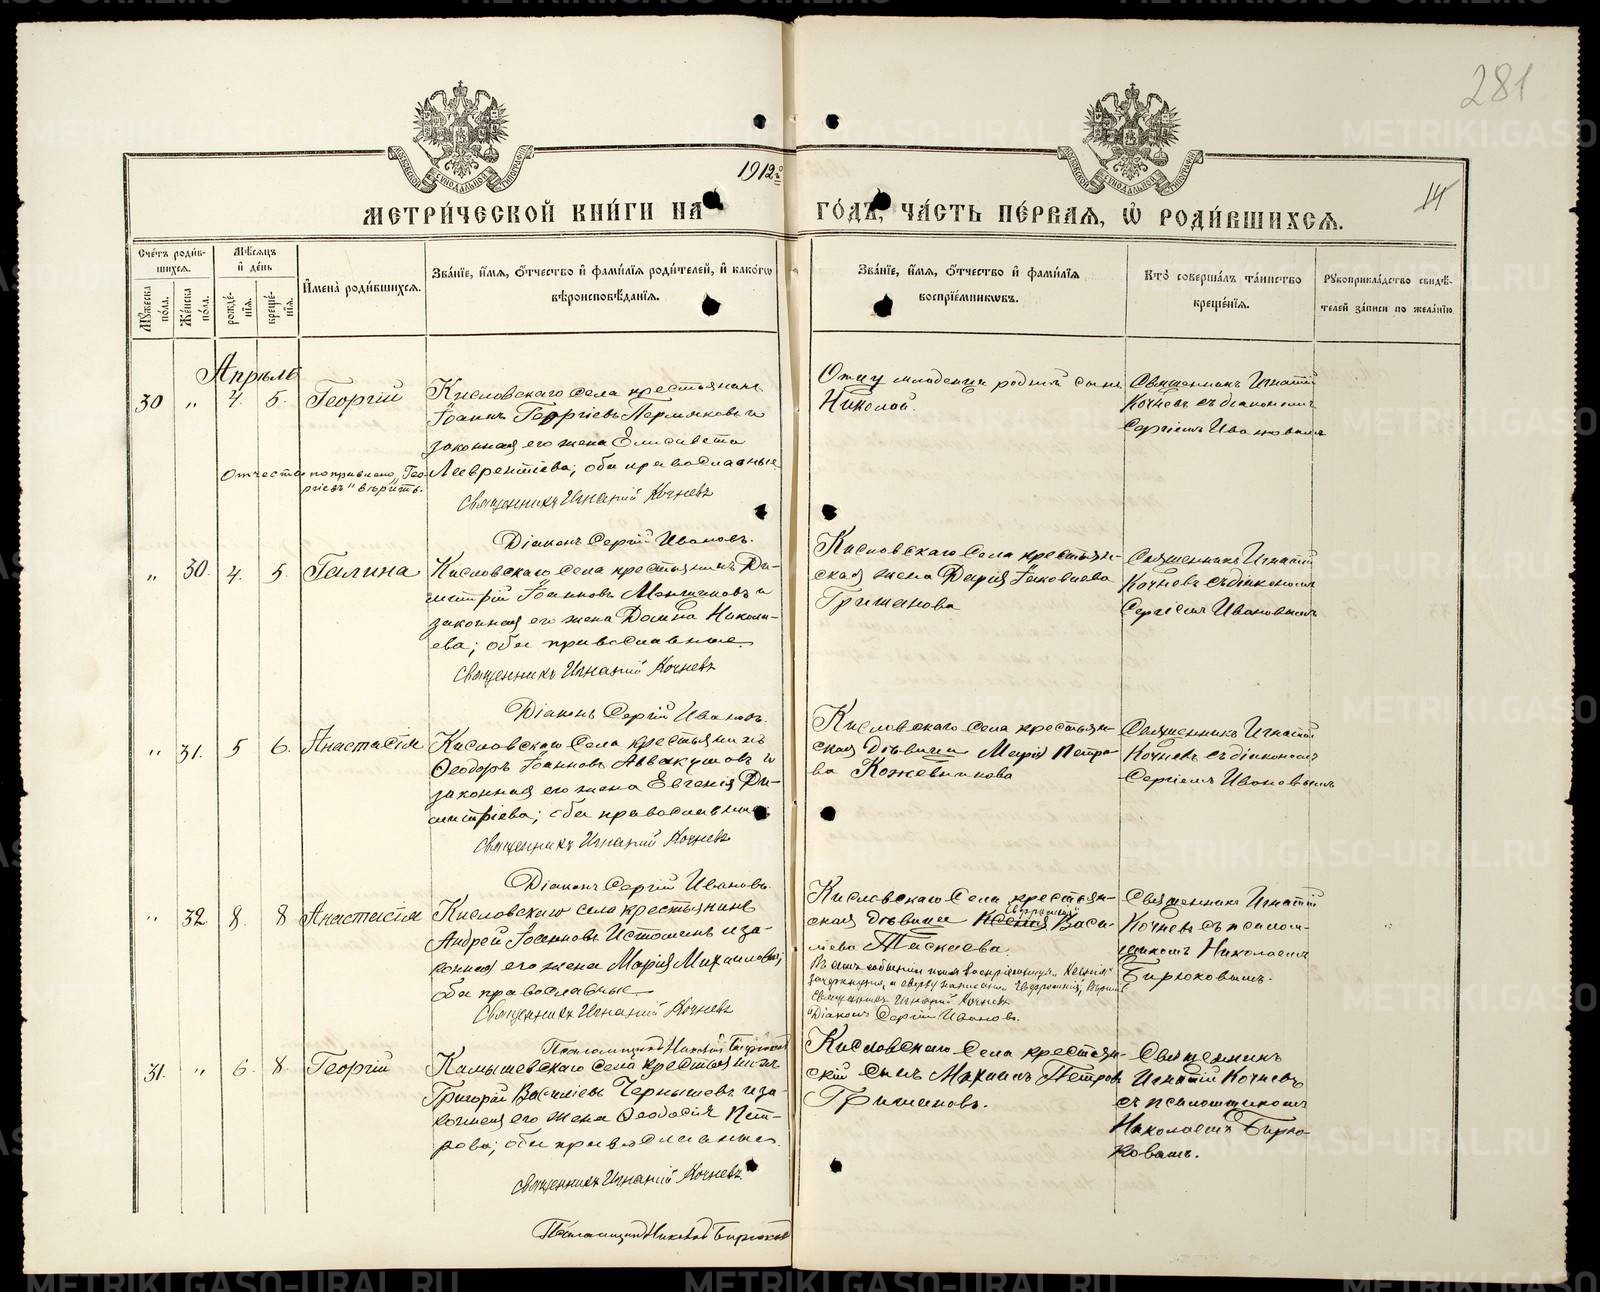 281
1912 г.
14
МЕТРИ́ЧЕСКОЙ КНИ́ГИ НА ГО́ДЪ, ЧА́СТЬ ПЕ́РВАЯ, Ѡ҆ РОДИ́ВШИХСѦ.
Сче́тъ роди́в-
шихсѧ.
Мꙋ́жеска по́ла.
Же́нска по́ла.
Мѣ́сѧцъ
и҆ де́нь
рожде́-
нїѧ.
креще́-
нїѧ.
И҆мена̀ роди́вшихсѧ.
Зва́нїе, и҆́мѧ, ѻ҆́тчество и҆ фами́лїѧ роди́телей, и҆ како́гѡ
вѣроисповѣ́данїѧ.
Зва́нїе, и҆́мѧ, ѻ҆́тчество и҆ фами́лїѧ
воспрїе́мникѡвъ.
Кто̀ соверша́лъ та́инство
креще́нїѧ.
Рꙋкоприкла́дство свидѣ́-
телей за́писи по жела́нїю
Апрѣль
30 " 4. 5. Георгій
Кисловскаго села крестьянинъ
Іоаннъ Георгіевъ Пермяковъ и
законная его жена Елисавета
Лаврентіева; оба православные
Отчество поправлено „Гео-
ргіевъ" вѣрить.
Священникъ Игнатій Кочневъ
Діаконъ Сергій Ивановъ.
Отцу младенца родной сынъ
Николай.
Священникъ Игнатій
Кочневъ съ діакономъ
Сергіемъ Ивановымъ
" 30. 4. 5. Галина
Кисловскаго села крестьянинъ Ди-
митрій Іоанновъ Меншиковъ и
законная его жена Домна Никола-
ева; оба православные
Священникъ Игнатій Кочневъ
Діаконъ Сергій Ивановъ.
Кисловскаго села крестьян-
ская жена Дарія Іаковлева
Гришанова
Священникъ Игнатій
Кочневъ съ діакономъ
Сергіемъ Ивановымъ
" 31. 5 6. Анастасія
Кисловскаго села крестьянинъ
Ѳеодоръ Іоанновъ Аввакумовъ и
законная его жена Евгенія Ди-
митріева; оба православные
Священникъ Игнатій Кочневъ
Діаконъ Сергій Ивановъ.
Кисловскаго села крестьян-
ская дѣвица Марія Петро-
ва Кожевникова
Священникъ Игнатій
Кочневъ съ діакономъ
Сергіемъ Ивановымъ
" 32. 8. 8 Анастасія
Кисловскаго села крестьянинъ
Андрей Іоанновъ Истоминъ и за-
конная его жена Марія Михаилова;
оба православные
Священникъ Игнатій Кочневъ
Псаломщикъ Николай Бирюковъ
Кисловскаго села крестьян-
ская дѣвица Ксенія Васи-
ліева
зачеркнуто, а сверху написано
Священникъ Игнатій Кочневъ
Діаконъ Сергій Ивановъ.
Священникъ Игнатій
Кочневъ съ псалом-
щикомъ Николаемъ
Бирюковымъ.
31. " 6. 8. Георгій
Камышевскаго села крестьянинъ
Григорій Василіевъ Чернышевъ и за-
конная его жена Ѳеодосія Пет-
рова; оба православные.
Священникъ Игнатій Кочневъ
Псаломщикъ Николай Бирюковъ
Кисловскаго села крестьян-
скій сынъ Михаилъ Петровъ
Гришановъ.
Священникъ
Игнатій Кочневъ
съ псаломщикомъ
Николаемъ Бирю-
ковымъ.
METRIKI.GASO-URAL.RU